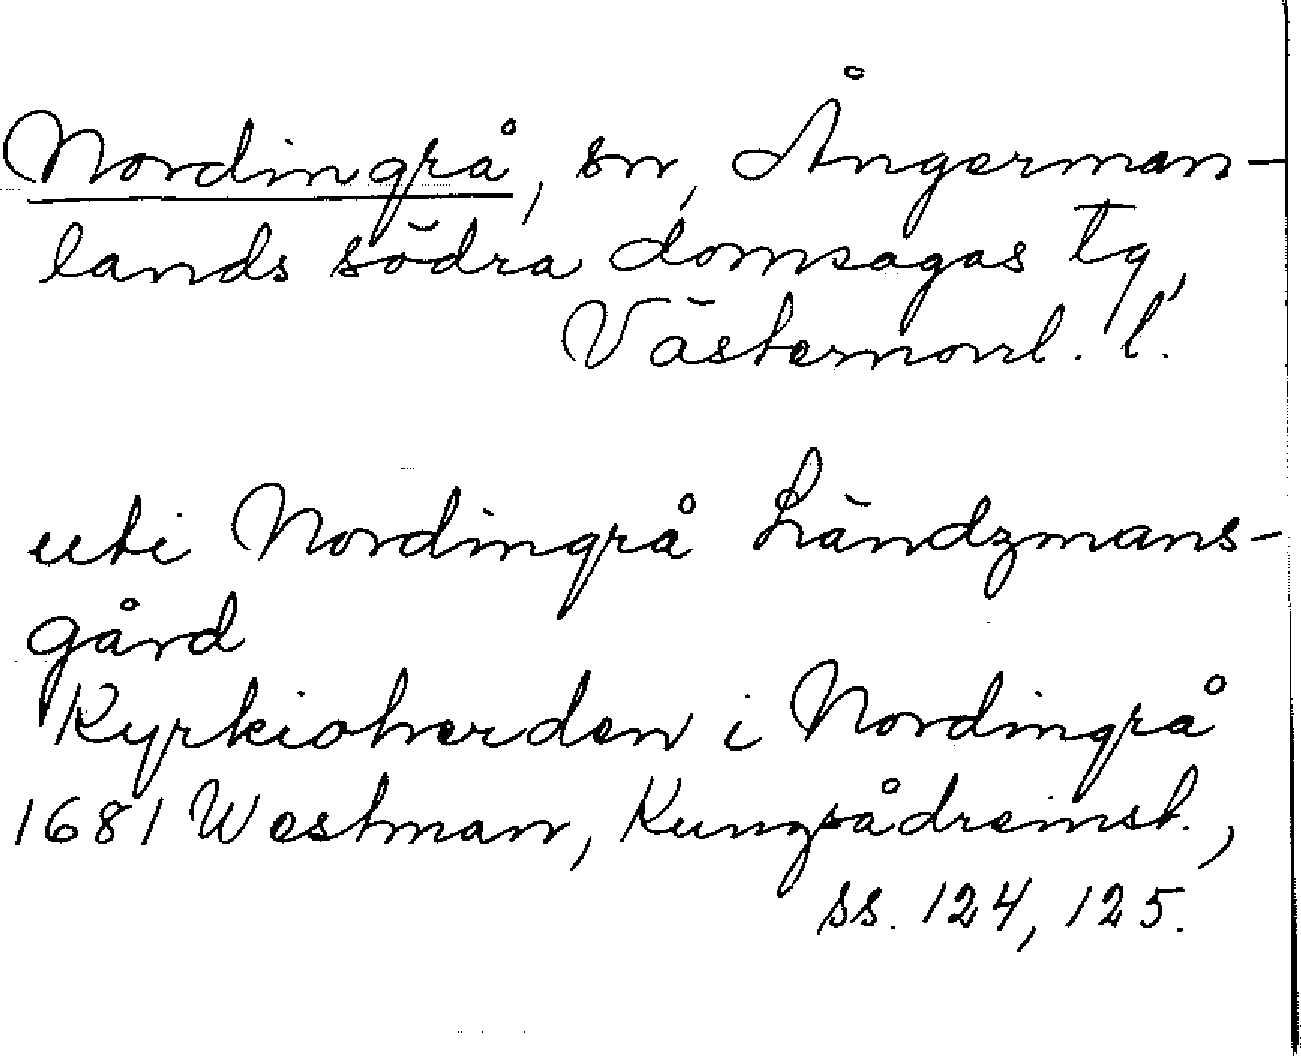 Nordingrå, sn, Ångerman-
lands södra domsagas tg,
Västernorrl. l.
uti Nordingrå Ländzmans-
gård
Kyrkioherden i Nordingrå
1681 Westman, Kungsådreinst.,
ss. 124, 125.